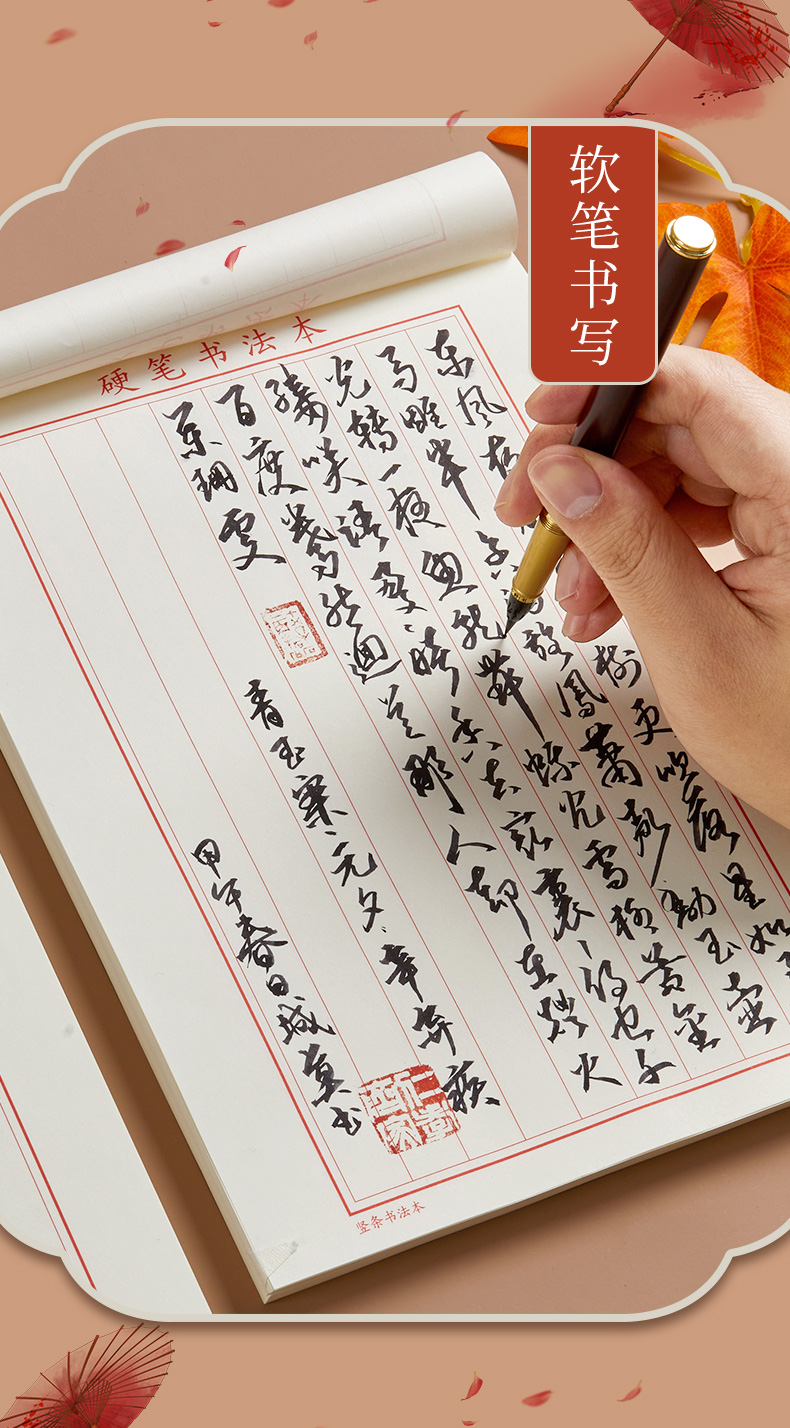 软笔书写
硬笔书法本
东风
树更吹落星如
马雕车香满路凤箫声动玉壶
光转一夜鱼龙舞蛾儿雪柳黄金
缕笑语盈盈暗香去众里寻他千
百度蓦然回首那人却在灯火
阑珊处
青玉案元夕辛弃疾
甲午春日城真书
竖条书法本